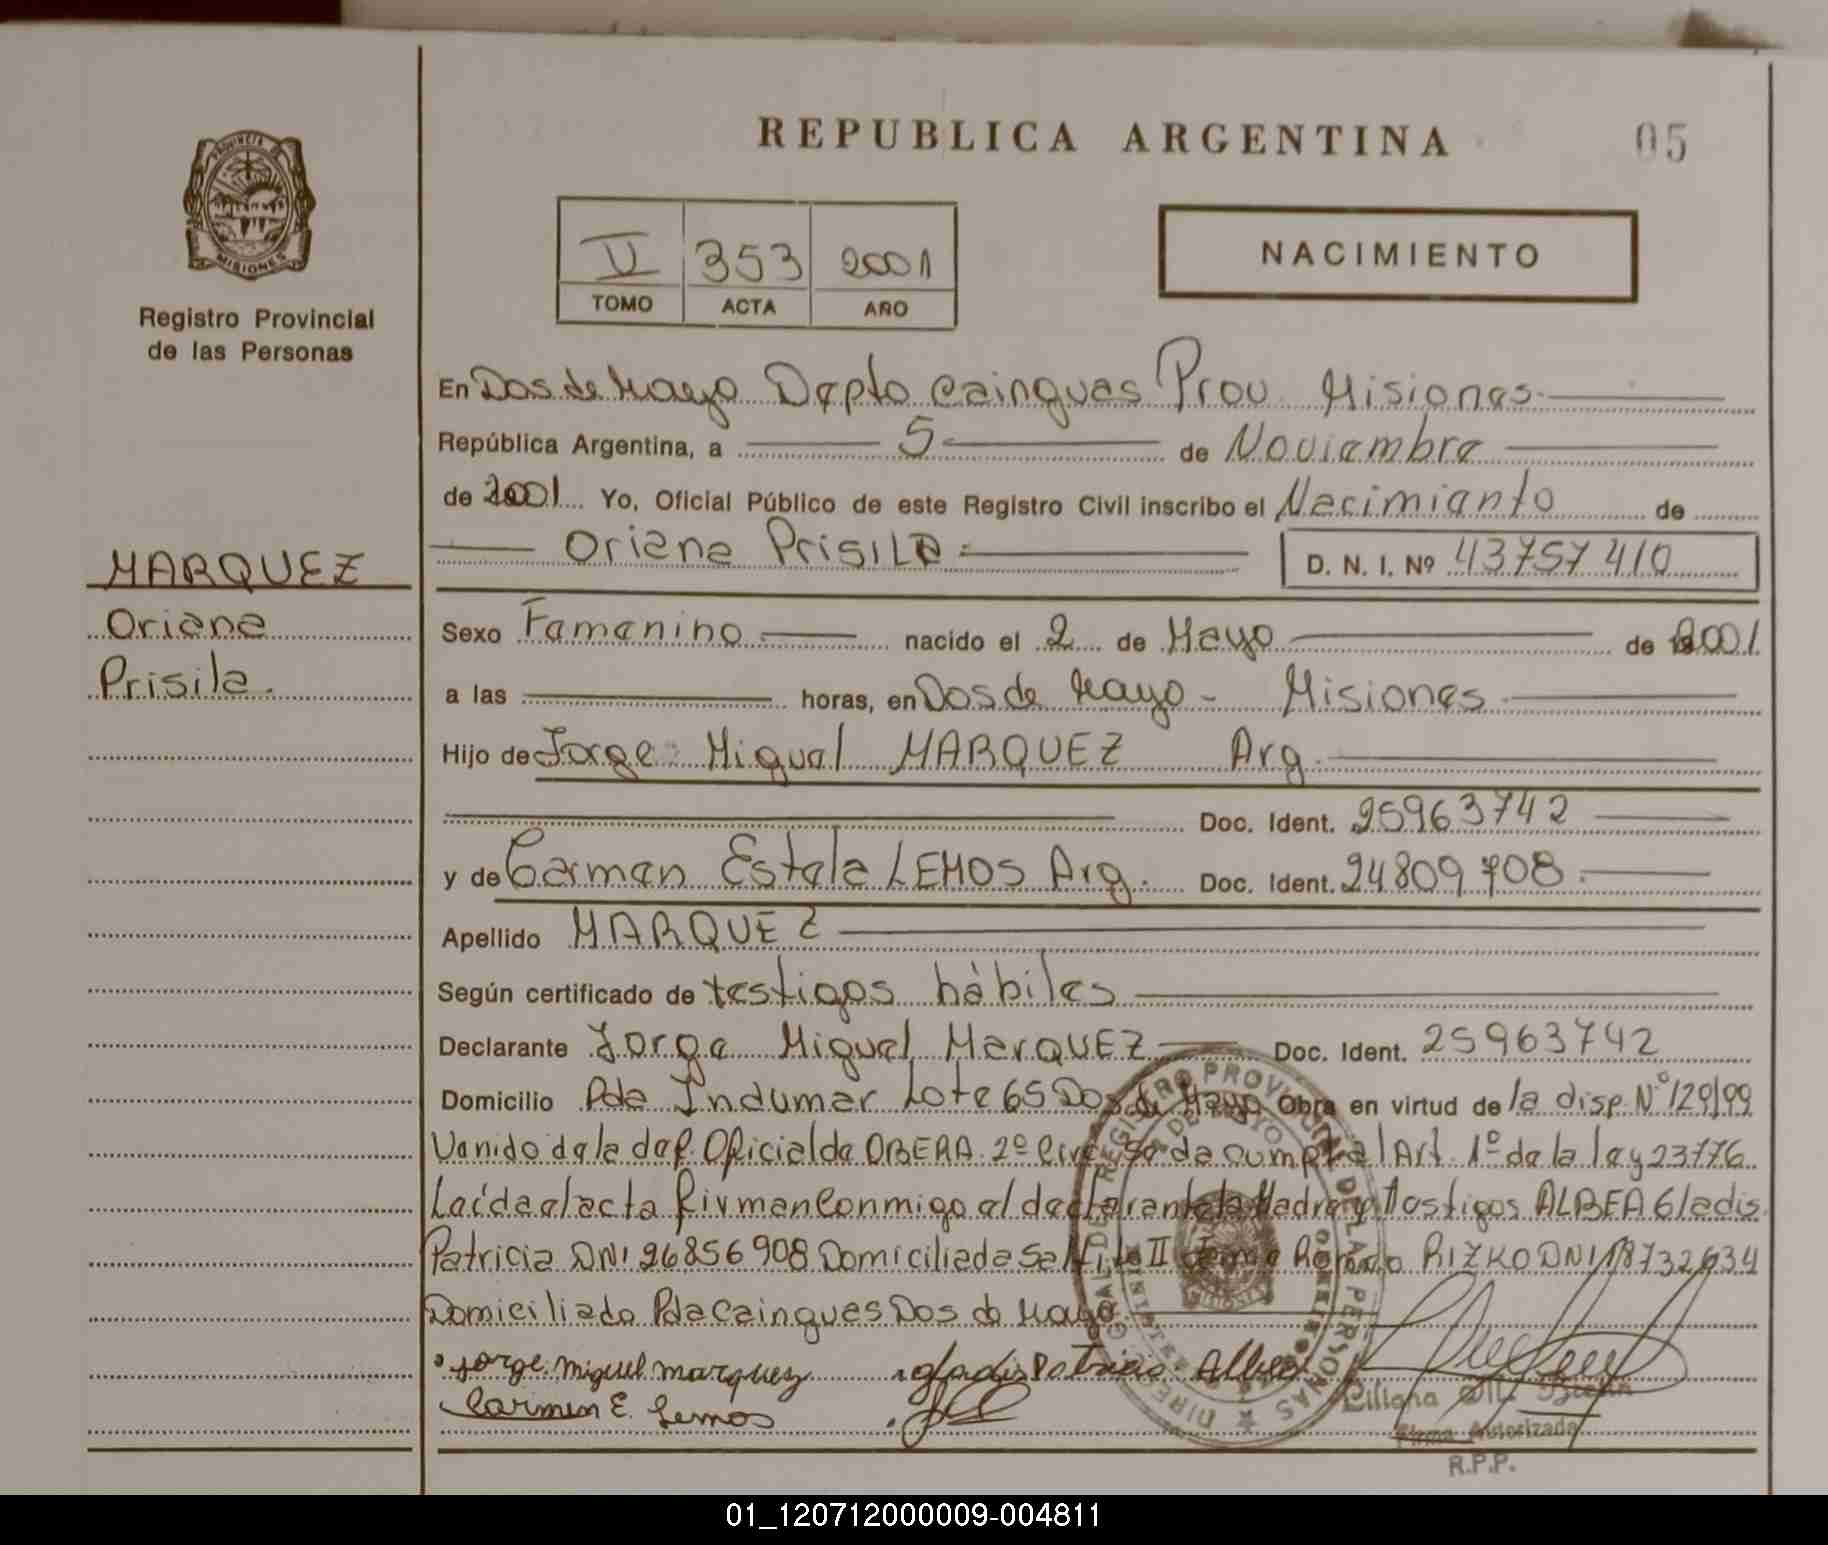 REPUBLICA ARGENTINA
05
PROVINCIA DE
MISIONES
Registro Provincial
de las Personas
II 353 2001
TOMO ACTA AÑO
NACIMIENTO
En Dos de Mayo Depto Cainguas Prov. Misiones
República Argentina, a 5 de Noviembre
de 2001 Yo, Oficial Público de este Registro Civil inscribo el Nacimiento de
Oriana Prisila
D. N. I. Nº 43757410
MARQUEZ
Oriana
Prisila.
Sexo Femenino nacido el 2 de Mayo de 2001
a las horas, en Dos de Mayo - Misiones
Hijo de Jorge Miguel MARQUEZ Arg.
Doc. Ident. 25963742
y de Carmen Estela LEMOS Arg. Doc. Ident. 24809708.
Apellido MARQUEZ
Según certificado de testigos hábiles
Declarante Jorge Miguel MarQUEZ Doc. Ident. 25963742
Domicilio Pda Indumar Lote 65 Dos de Mayo Obra en virtud de la disp. Nº 129/99
Venido de la def. Oficial de OBERA 2º Circ. Se da cumpl al Art. 1º de la ley 23776
Leída el acta firman Conmigo el declarante la Madre y testigos ALBEA Gladis
Patricia DNI 26856908 Domiciliada Saltito II RIZKO DNI 18732634
Domiciliado Pda Cainguas Dos de Mayo
Jorge miguel marquez Gladis Patricia Albea
Carmen E. Lemos
REGISTRO PROVINCIAL DE LAS PERSONAS
DOS DE MAYO
MISIONES
Liliana
Firma Autorizada
R.P.P.
01_120712000009-004811